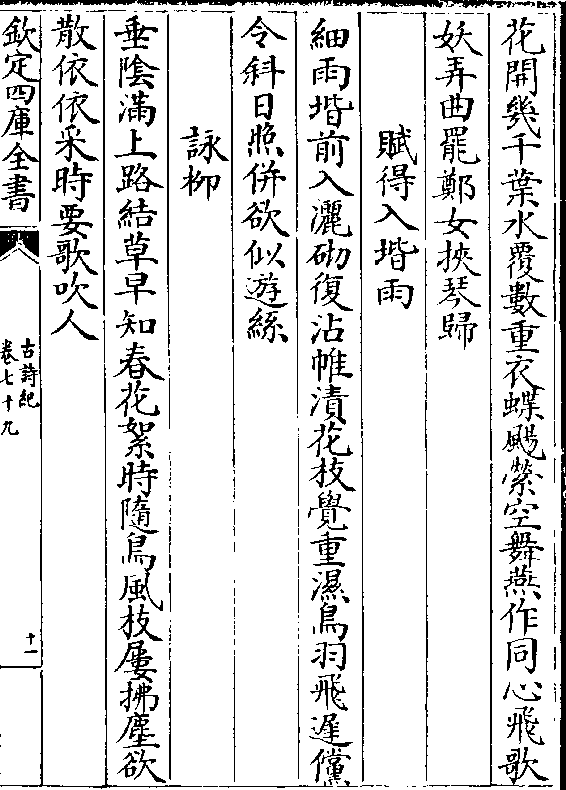 花開幾千葉水覆數重衣蝶颺縈空舞燕作同心飛歌
妖弄曲罷鄭女挾琴歸
賦得入堦雨
細雨堦前入灑砌復沾帷漬花枝覺重濕鳥羽飛遲儻
令斜日照併欲似遊絲
詠柳
垂陰滿上路結草早知春花絮時隨鳥風枝屢拂塵欲
散依依采時要歌吹人
欽定四庫全書
古詩紀
卷七十九
十一